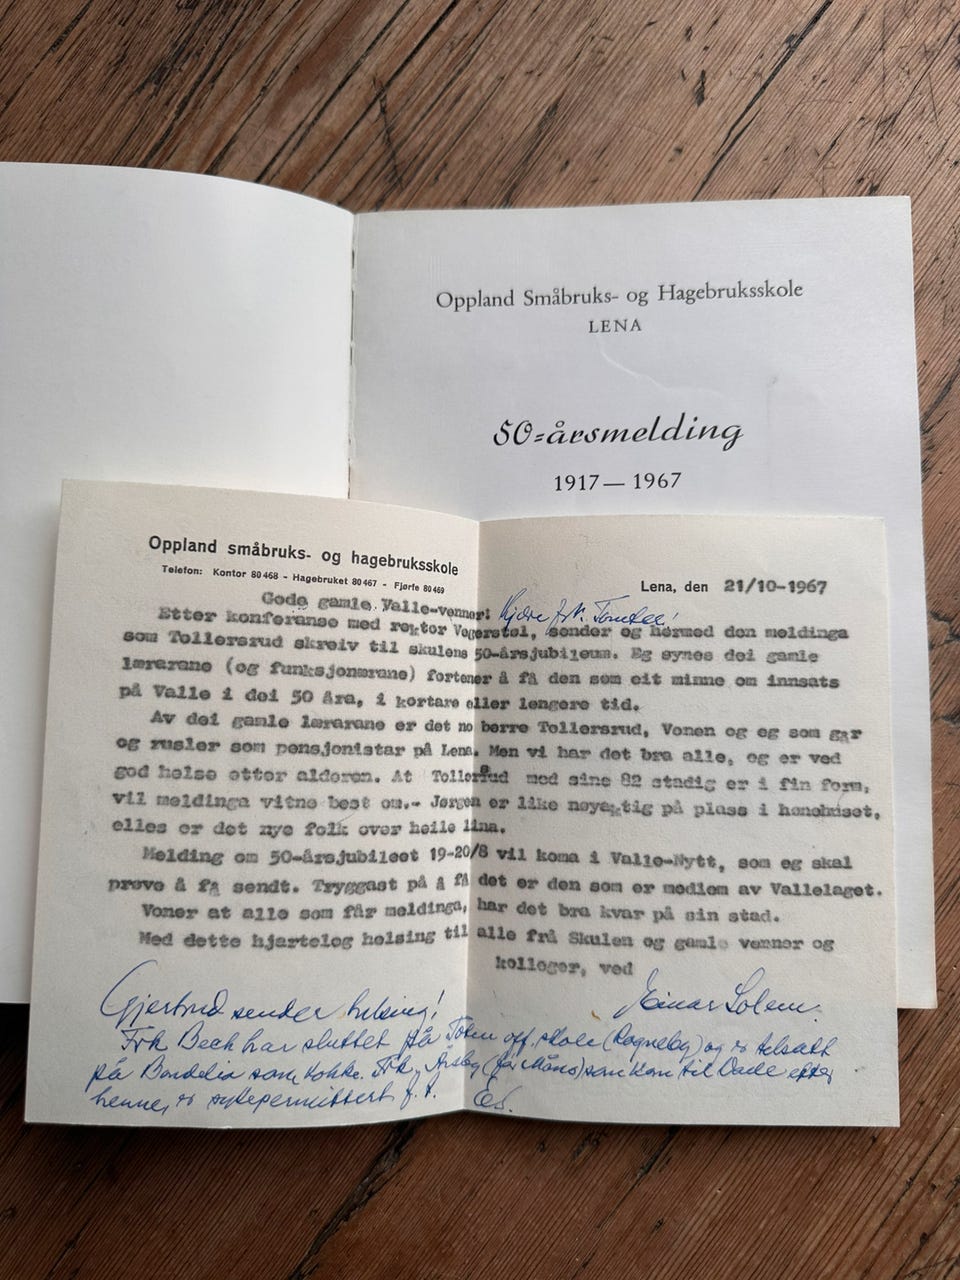 Oppland Småbruks- og Hagebruksskole
LENA
50-årsmelding
1917 — 1967
Oppland småbruks- og hagebruksskole
Telefon: Kontor 80468 - Hagebruket 80467 - Fjørfe 80469
Lena, den 21/10-1967
Gode gamle Valle-venner! Kjære frk.
Etter konferanse med rektor Vegerstøl, sender eg hermed den meldinga
som Tollersrud skreiv til skulens 50-årsjubileum. Eg synes dei gamle
lærarane (og funksjonærane) fortener å få den som eit minne om innsats
på Valle i dei 50 åra, i kortare eller lengere tid.
Av dei gamle lærarane er det no berre Tollersrud, Vonen og eg som går
og rusler som pensjonistar på Lena. Men vi har det bra alle, og er ved
god helse etter alderen. At Tollersrud med sine 82 stadig er i fin form,
vil meldinga vitne best om.- Jørgen er like nøyaktig på plass i hønehuset,
elles er det nye folk over heile lina.
Melding om 50-årsjubileet 19-20/8 vil koma i Valle-Nytt, som eg skal
prøve å få sendt. Tryggast på å få det er den som er medlem av Vallelaget.
Voner at alle som får meldinga, har det bra kvar på sin stad.
Med dette hjarteleg helsing til alle frå Skulen og gamle venner og
kolleger, ved
Gjertrud sender helsing! Einar Solem.
Frk Bech har sluttet på Toten off. skole (Rogneby) og er tilsatt
på Bondelia som kokke. Frk. som kom til Dade efter
henne, er sykepermittert f.t. ES.